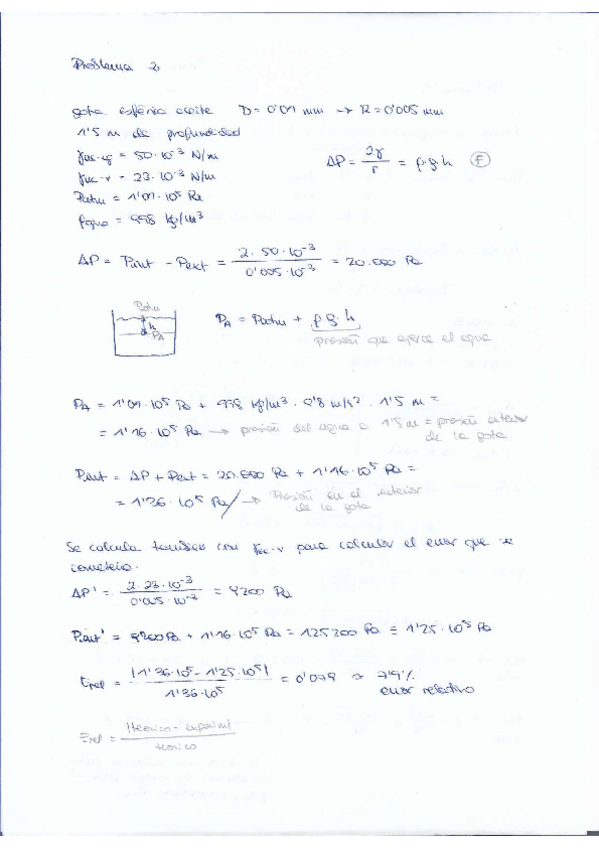 Problema 2
gota esférica aceite D = 0'01 mm → R = 0'005 mm
1'5 m de profundidad
γac-ag = 50·10⁻³ N/m
γac-v = 23·10⁻³ N/m
ΔP = 2γ/r = ρ·g·h (F)
Patm = 1'01·10⁵ Pa
ρagua = 998 kg/m³
ΔP = Pint - Pext = 2·50·10⁻³ / 0'005·10⁻³ = 20.000 Pa
Patm
h
PA
PA = Patm + ρ·g·h
presión que ejerce el agua
PA = 1'01·10⁵ Pa + 998 kg/m³ · 9'8 m/s² · 1'5 m =
= 1'16·10⁵ Pa → presión del agua a 1'5 m = presión exterior
de la gota
Pint = ΔP + Pext = 20.000 Pa + 1'16·10⁵ Pa =
= 1'36·10⁵ Pa → Presión en el interior
de la gota
Se calcula también con γac-v para calcular el error que se
cometería.
ΔP' = 2·23·10⁻³ / 0'005·10⁻³ = 9200 Pa
Pint' = 9200 Pa + 1'16·10⁵ Pa = 125200 Pa ≡ 1'25·10⁵ Pa
Erel = |1'36·10⁵ - 1'25·10⁵| / 1'36·10⁵ = 0'079 → 7'9%
error relativo
Erel = |teórico - experim| / teórico